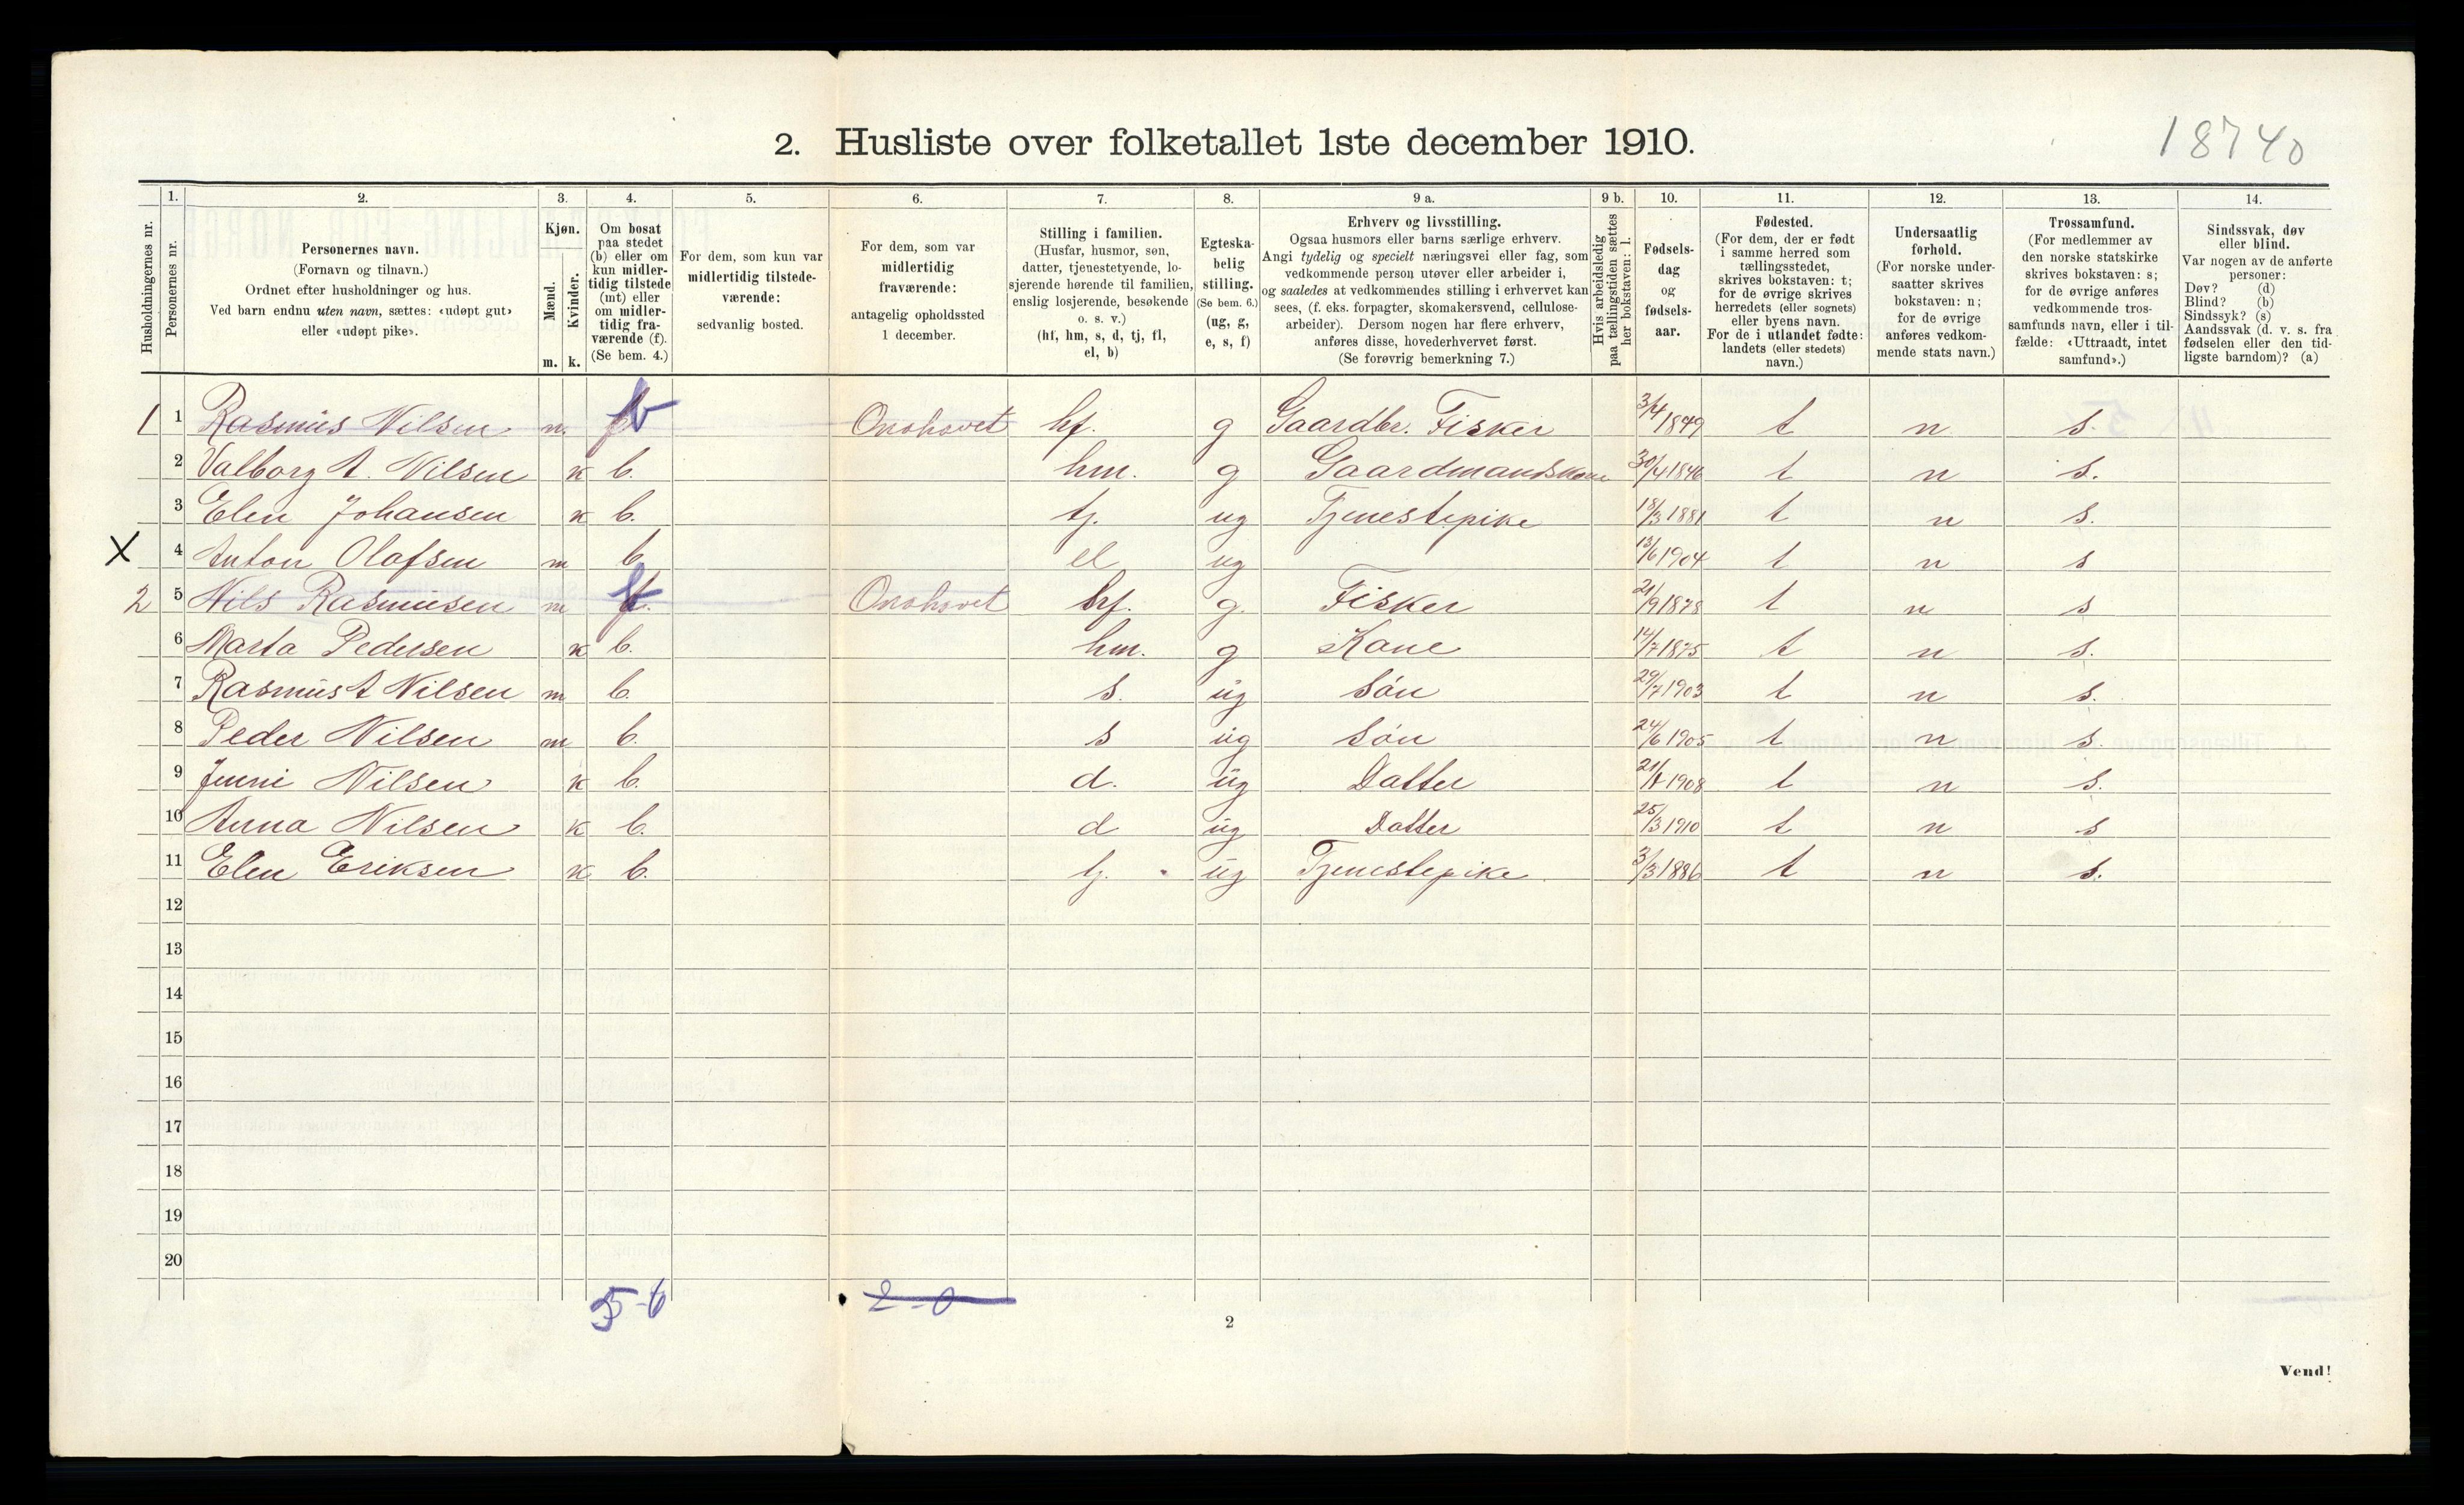 18740
2. Husliste over folketallet 1ste december 1910.
Husholdningernes nr.
1.
Personernes nr.
2.
Personernes navn.
(Fornavn og tilnavn.)
Ordnet efter husholdninger og hus.
Ved barn endnu uten navn, sættes: «udøpt gut»
eller «udøpt pike».
3.
Kjøn.
Mænd.
Kvinder.
m. k.
4.
Om bosat
paa stedet
(b) eller om
kun midler-
tidig tilstede
(mt) eller
om midler-
tidig fra-
værende (f).
(Se bem. 4.)
5.
For dem, som kun var
midlertidig tilstede-
værende:
sedvanlig bosted.
6.
For dem, som var
midlertidig
fraværende:
antagelig opholdssted
1 december.
7.
Stilling i familien.
(Husfar, husmor, søn,
datter, tjenestetyende, lo-
sjerende hørende til familien,
enslig losjerende, besøkende
o. s. v.)
(hf, hm, s, d, tj, fl,
el, b)
8.
Egteska-
belig
stilling.
(Se bem. 6.)
(ug, g,
e, s, f)
9 a.
Erhverv og livsstilling.
Ogsaa husmors eller barns særlige erhverv.
Angi tydelig og specielt næringsvei eller fag, som
vedkommende person utøver eller arbeider i,
og saaledes at vedkommendes stilling i erhvervet kan
sees, (f. eks. forpagter, skomakersvend, cellulose-
arbeider). Dersom nogen har flere erhverv,
anføres disse, hovederhvervet først.
(Se forøvrig bemerkning 7.)
9 b.
Hvis arbeidsledig
paa tællingstiden sættes
her bokstaven: l.
10.
Fødsels-
dag
og
fødsels-
aar.
11.
Fødested.
(For dem, der er født
i samme herred som
tællingsstedet,
skrives bokstaven: t;
for de øvrige skrives
herredets (eller sognets)
eller byens navn.
For de i utlandet fødte:
landets (eller stedets)
navn.)
12.
Undersaatlig
forhold.
(For norske under-
saatter skrives
bokstaven: n;
for de øvrige
anføres vedkom-
mende stats navn.)
13.
Trossamfund.
(For medlemmer av
den norske statskirke
skrives bokstaven: s;
for de øvrige anføres
vedkommende tros-
samfunds navn, eller i til-
fælde: «Uttraadt, intet
samfund».)
14.
Sindssvak, døv
eller blind.
Var nogen av de anførte
personer:
Døv? (d)
Blind? (b)
Sindssyk? (s)
Aandssvak (d. v. s. fra
fødselen eller den tid-
ligste barndom)? (a)
1 1 Rasmus Nilsen m. Onohovet hf. g Gaardbr. Fisker 3/4 1849 t n s.
2 Valborg A. Nilsen k b. hm. g Gaardmandskone 30/4 1846 t n s.
3 Elen Johansen k b. tj. ug Tjenestepike 18/3 1881 t n s.
X 4 Anton Olafsen m b el ug 13/6 1904 t n s
2 5 Nils Rasmusen m Onohovet hf. g. Fisker 21/9 1878 t n s
6 Marta Pedersen k b. hm. g Kone 14/7 1875 t n s.
7 Rasmus A Nilsen m b. s. ug Søn 29/7 1903 t n s.
8 Peder Nilsen m b. s ug Søn 24/6 1905 t n s.
9 Jenni Nilsen k b. d. ug Datter 1908 t n s.
10 Anna Nilsen k b. d ug Datter 25/3 1910 t n s
11 Elen Eriksen k b. tj. ug Tjenestepike 3/3 1886 t n s.
12
13
14
15
16
17
18
19
20
5-6 2-0
2
Vend!